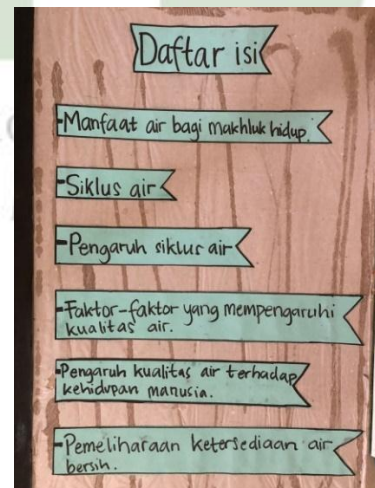 Daftar isi
-Manfaat air bagi makhluk hidup.
-Siklus air
-Pengaruh siklus air
-Faktor-faktor yang mempengaruhi
kualitas air.
-Pengaruh kualitas air terhadap
kehidupan manusia.
-Pemeliharaan ketersediaan air
bersih.